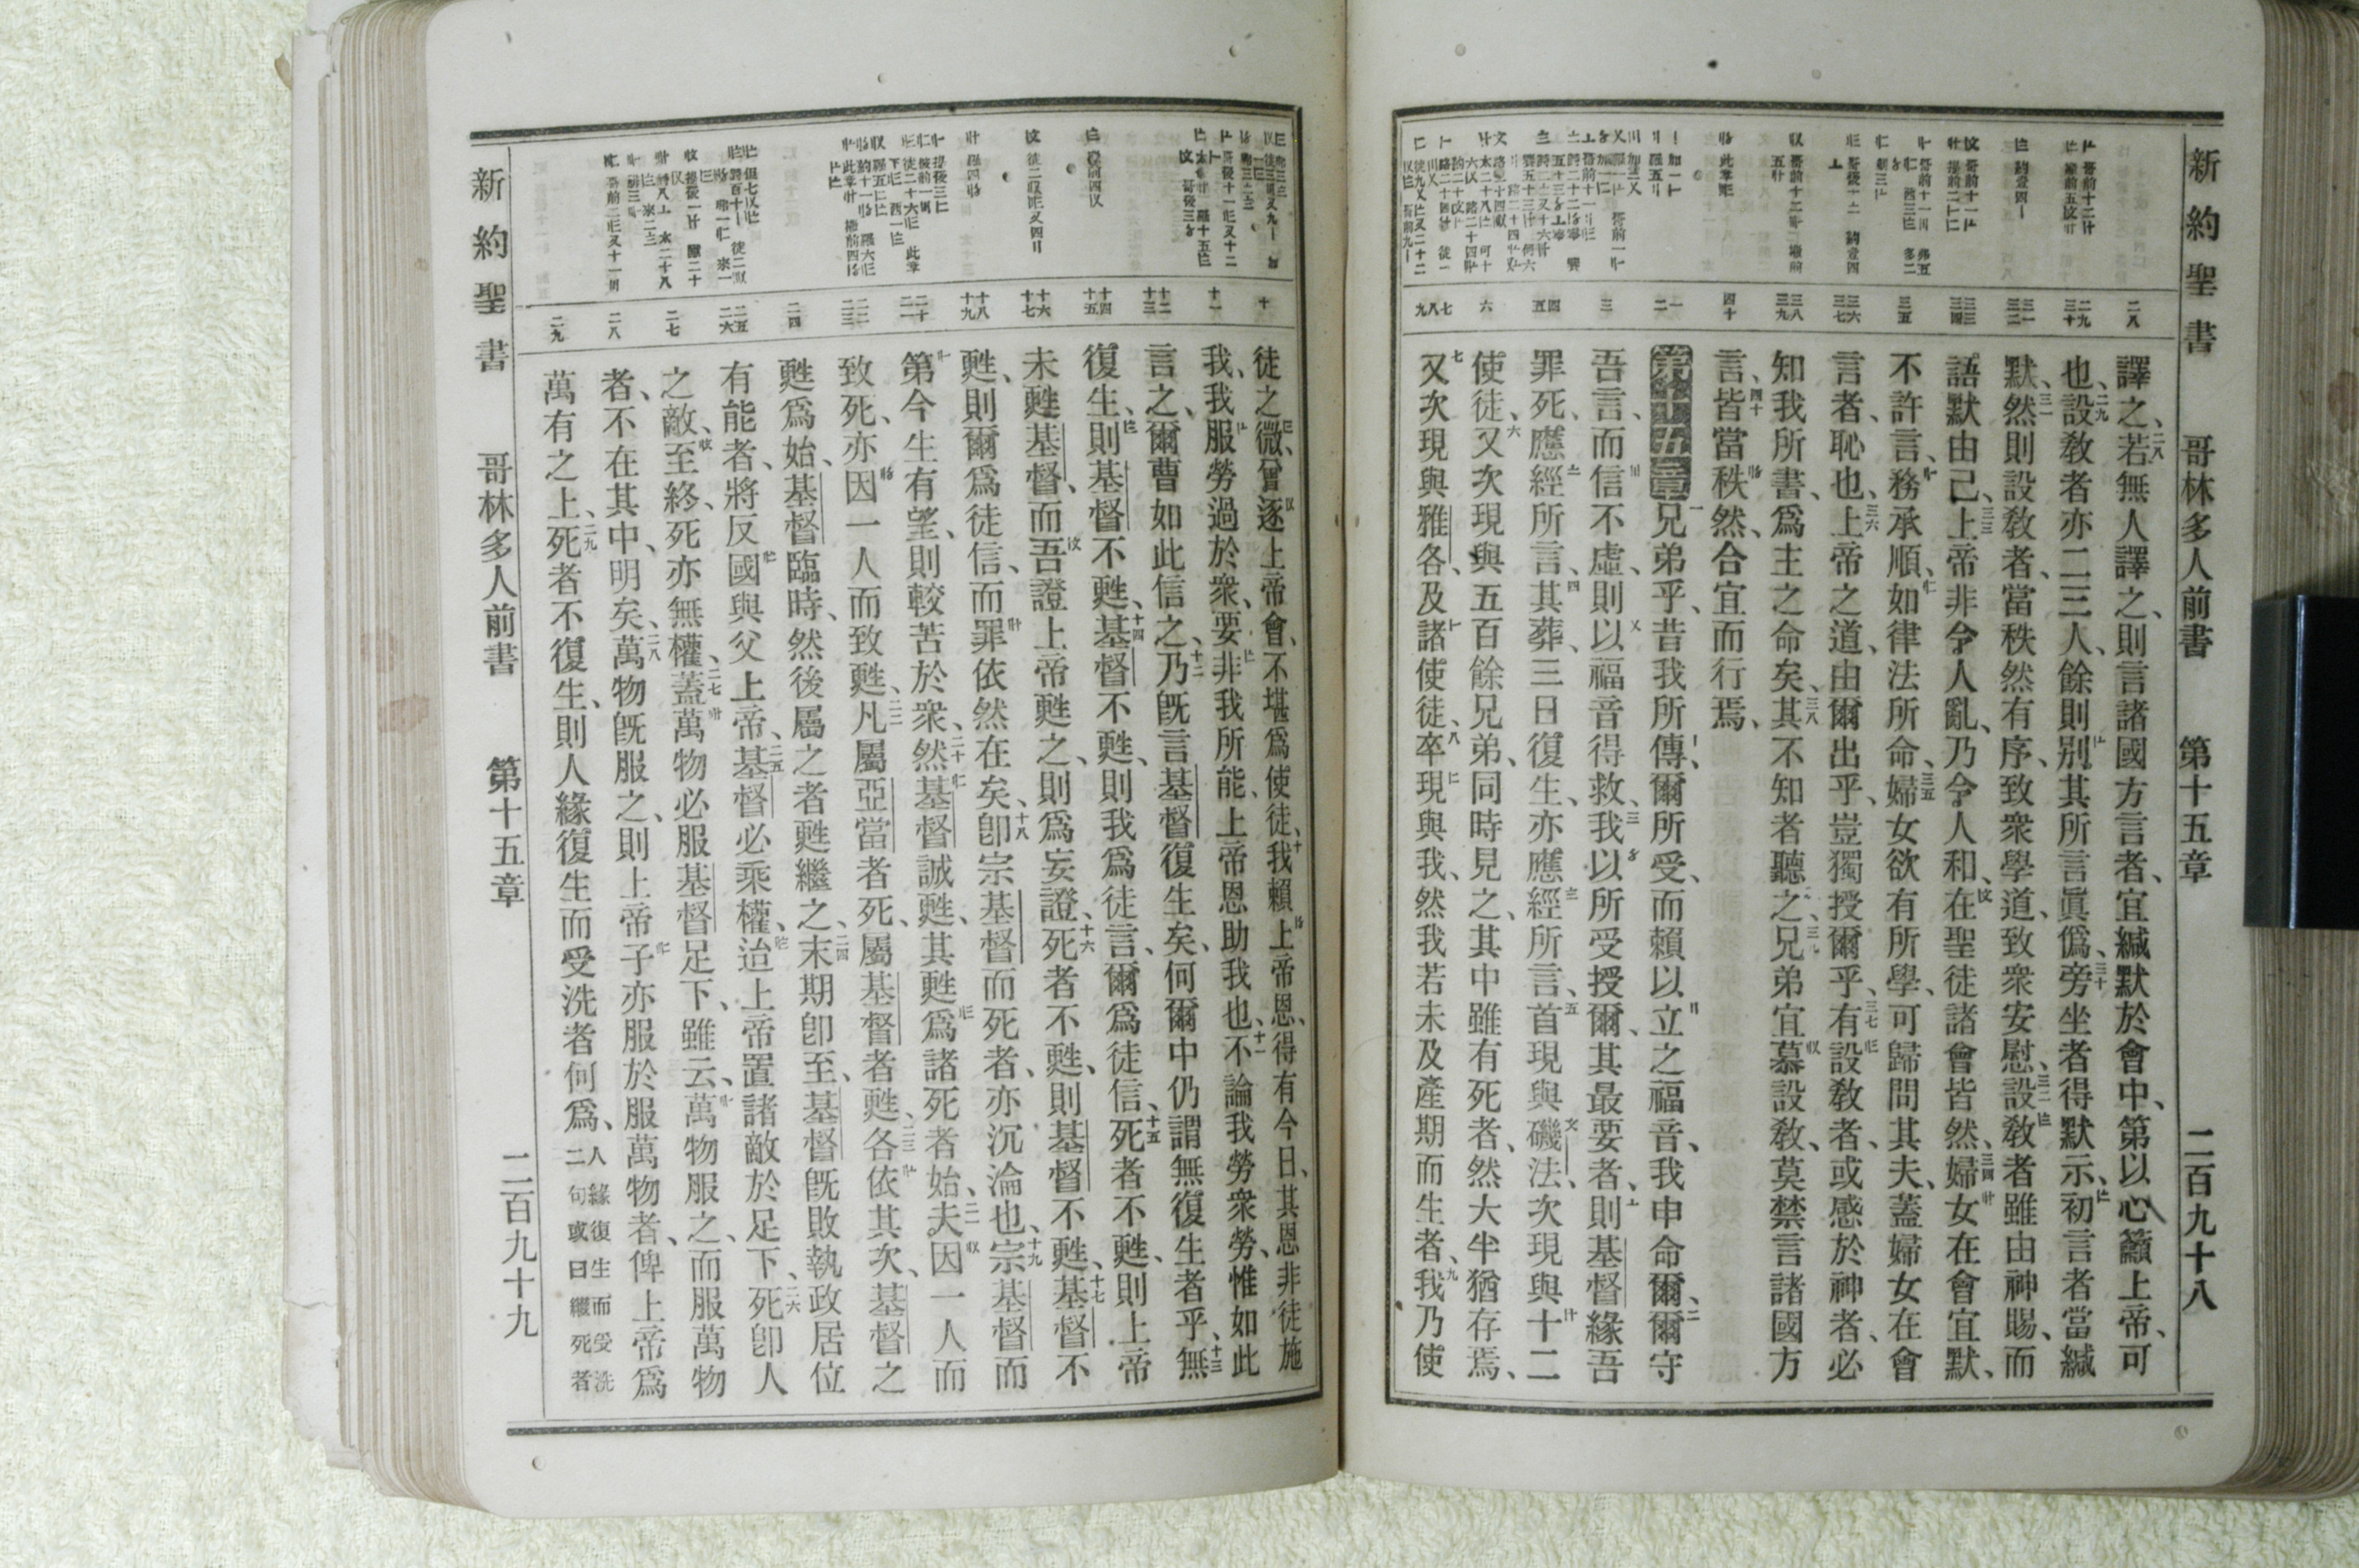 新約聖書 哥林多人前書 第十五章 二百九十八
二八
二九 三十
三一 三二
三三 三四
三五
三六 三七
三八 三九
四十
一 二
三
四 五
六
七 八 九
譯之、二八若無人譯之、則言諸國方言者、宜緘默於會中、第以心籲上帝、可
也、二九設教者亦二三人、餘則別其所言眞僞、三十旁坐者得默示、初言者當緘
默、三一然則設教者、當秩然有序、致衆學道、致衆安慰、三二設教者雖由神賜、而
語默由己、三三上帝非令人亂、乃令人和、在聖徒諸會皆然、三四婦女在會宜默、
不許言、務承順、如律法所命、三五婦女欲有所學、可歸問其夫、蓋婦女在會
言者、恥也、三六上帝之道、由爾出乎、豈獨授爾乎、三七有設教者、或感於神者、必
知我所書、爲主之命矣、三八其不知者聽之、三九兄弟宜慕設教、莫禁言諸國方
言、四十皆當秩然、合宜而行焉、
第拾五章 一兄弟乎、昔我所傳、爾所受、而賴以立之福音、我申命爾、二爾守
吾言、而信不虛、則以福音得救、三我以所受授爾、其最要者、則基督緣吾
罪死、應經所言、四其葬、三日復生、亦應經所言、五首現與磯法、次現與十二
使徒、六又次現與五百餘兄弟、同時見之、其中雖有死者、然大半猶存焉、
七又次現與雅各、及諸使徒、八卒現與我、然我若未及產期而生者、九我乃使
新約聖書 哥林多人前書 第十五章 二百九十九
十
十一
十二 十三
十四 十五
十六 十七
十八 十九
二十 二一
二二 二三
二四
二五 二六
二七
二八
二九
徒之微、曾逐上帝會、不堪爲使徒、十我賴上帝恩、得有今日、其恩非徒施
我、我服勞過於衆、要非我所能、上帝恩助我也、十一不論我勞衆勞、惟如此
言之、爾曹如此信之、十二乃旣言基督復生矣、何爾中仍謂無復生者乎、十三無
復生、則基督不甦、十四基督不甦、則我爲徒言、爾爲徒信、十五死者不甦、則上帝
未甦基督、而吾證上帝甦之、則爲妄證、十六死者不甦、則基督不甦、十七基督不
甦、則爾爲徒信、而罪依然在矣、十八卽宗基督而死者、亦沉淪也、十九宗基督而
第今生有望、則較苦於衆、二十然基督誠甦、其甦爲諸死者始、二一夫因一人而
致死、亦因一人而致甦、二二凡屬亞當者死、屬基督者甦、二三各依其次、基督之
甦爲始、基督臨時、然後屬之者甦繼之、二四末期卽至、基督旣敗執政居位
有能者、將反國與父上帝、二五基督必乘權、迨上帝置諸敵於足下、二六死卽人
之敵、至終、死亦無權、二七蓋萬物必服基督足下、雖云、萬物服之、而服萬物
者、不在其中、明矣、二八萬物旣服之、則上帝子亦服於服萬物者、俾上帝爲
萬有之上、二九死者不復生、則人緣復生而受洗者何爲、人緣復生而受洗
二句或曰繼死者